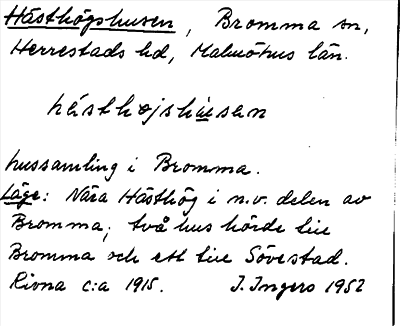 Hästhögshusen, Bromma sn,
Herrestads hd, Malmöhus län.
hästhøjshusen
hussamling i Bromma.
Läge: Nära Hästhög i n.v. delen av
Bromma; två hus hörde till
Bromma och ett till Sövestad.
Rivna c:a 1915. I. Ingers 1952